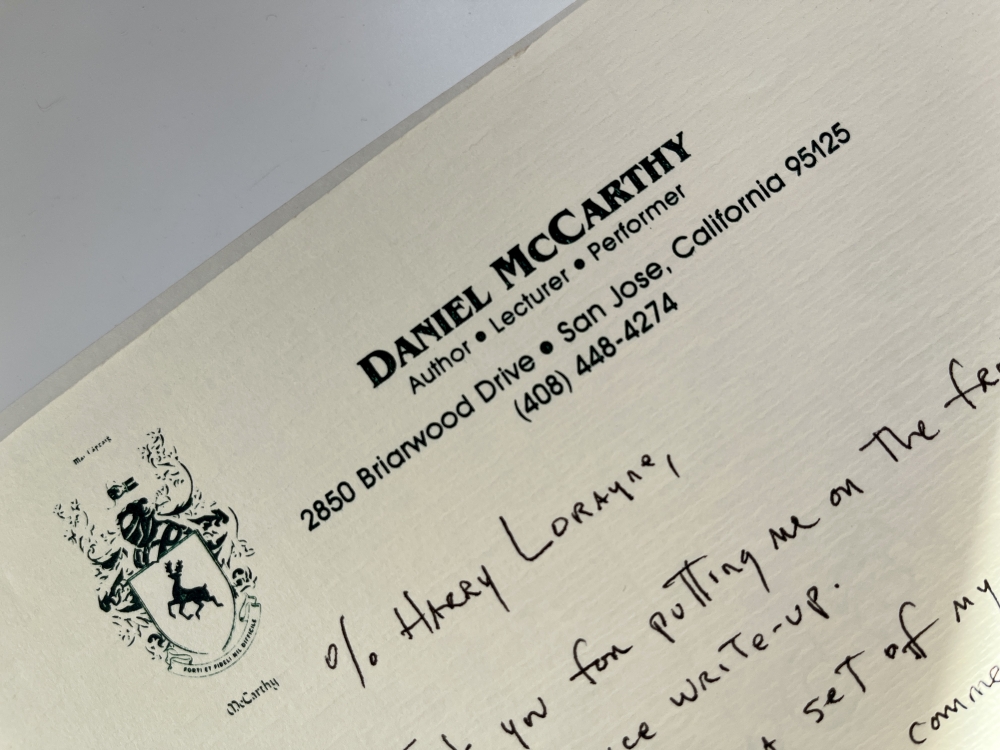 DANIEL McCARTHY
Author • Lecturer • Performer
2850 Briarwood Drive • San Jose, California 95125
(408) 448-4274
FORTI ET FIDELI NIL DIFFICILE
McCarthy
% HARRY LORAYNE,
you for putting me on The
write-up.
set of my